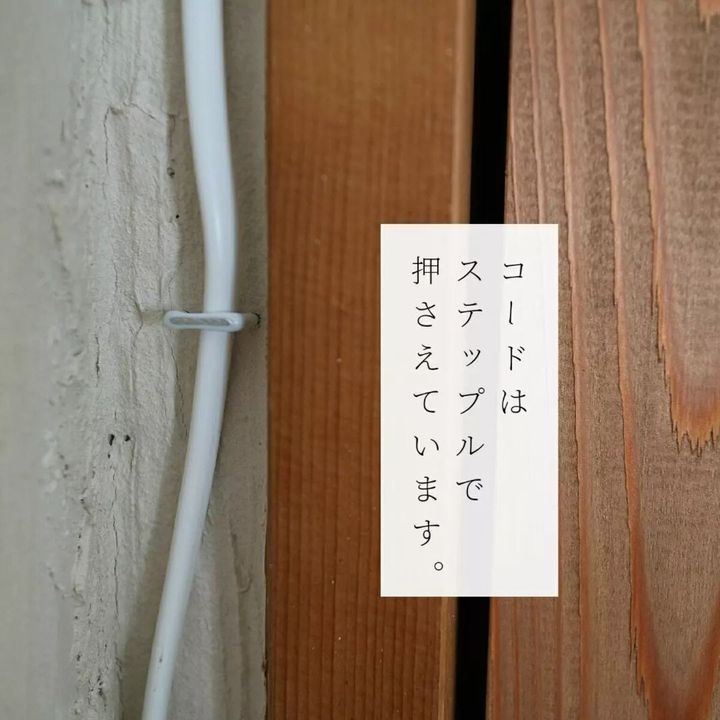 コードは
ステップルで
押さえています。